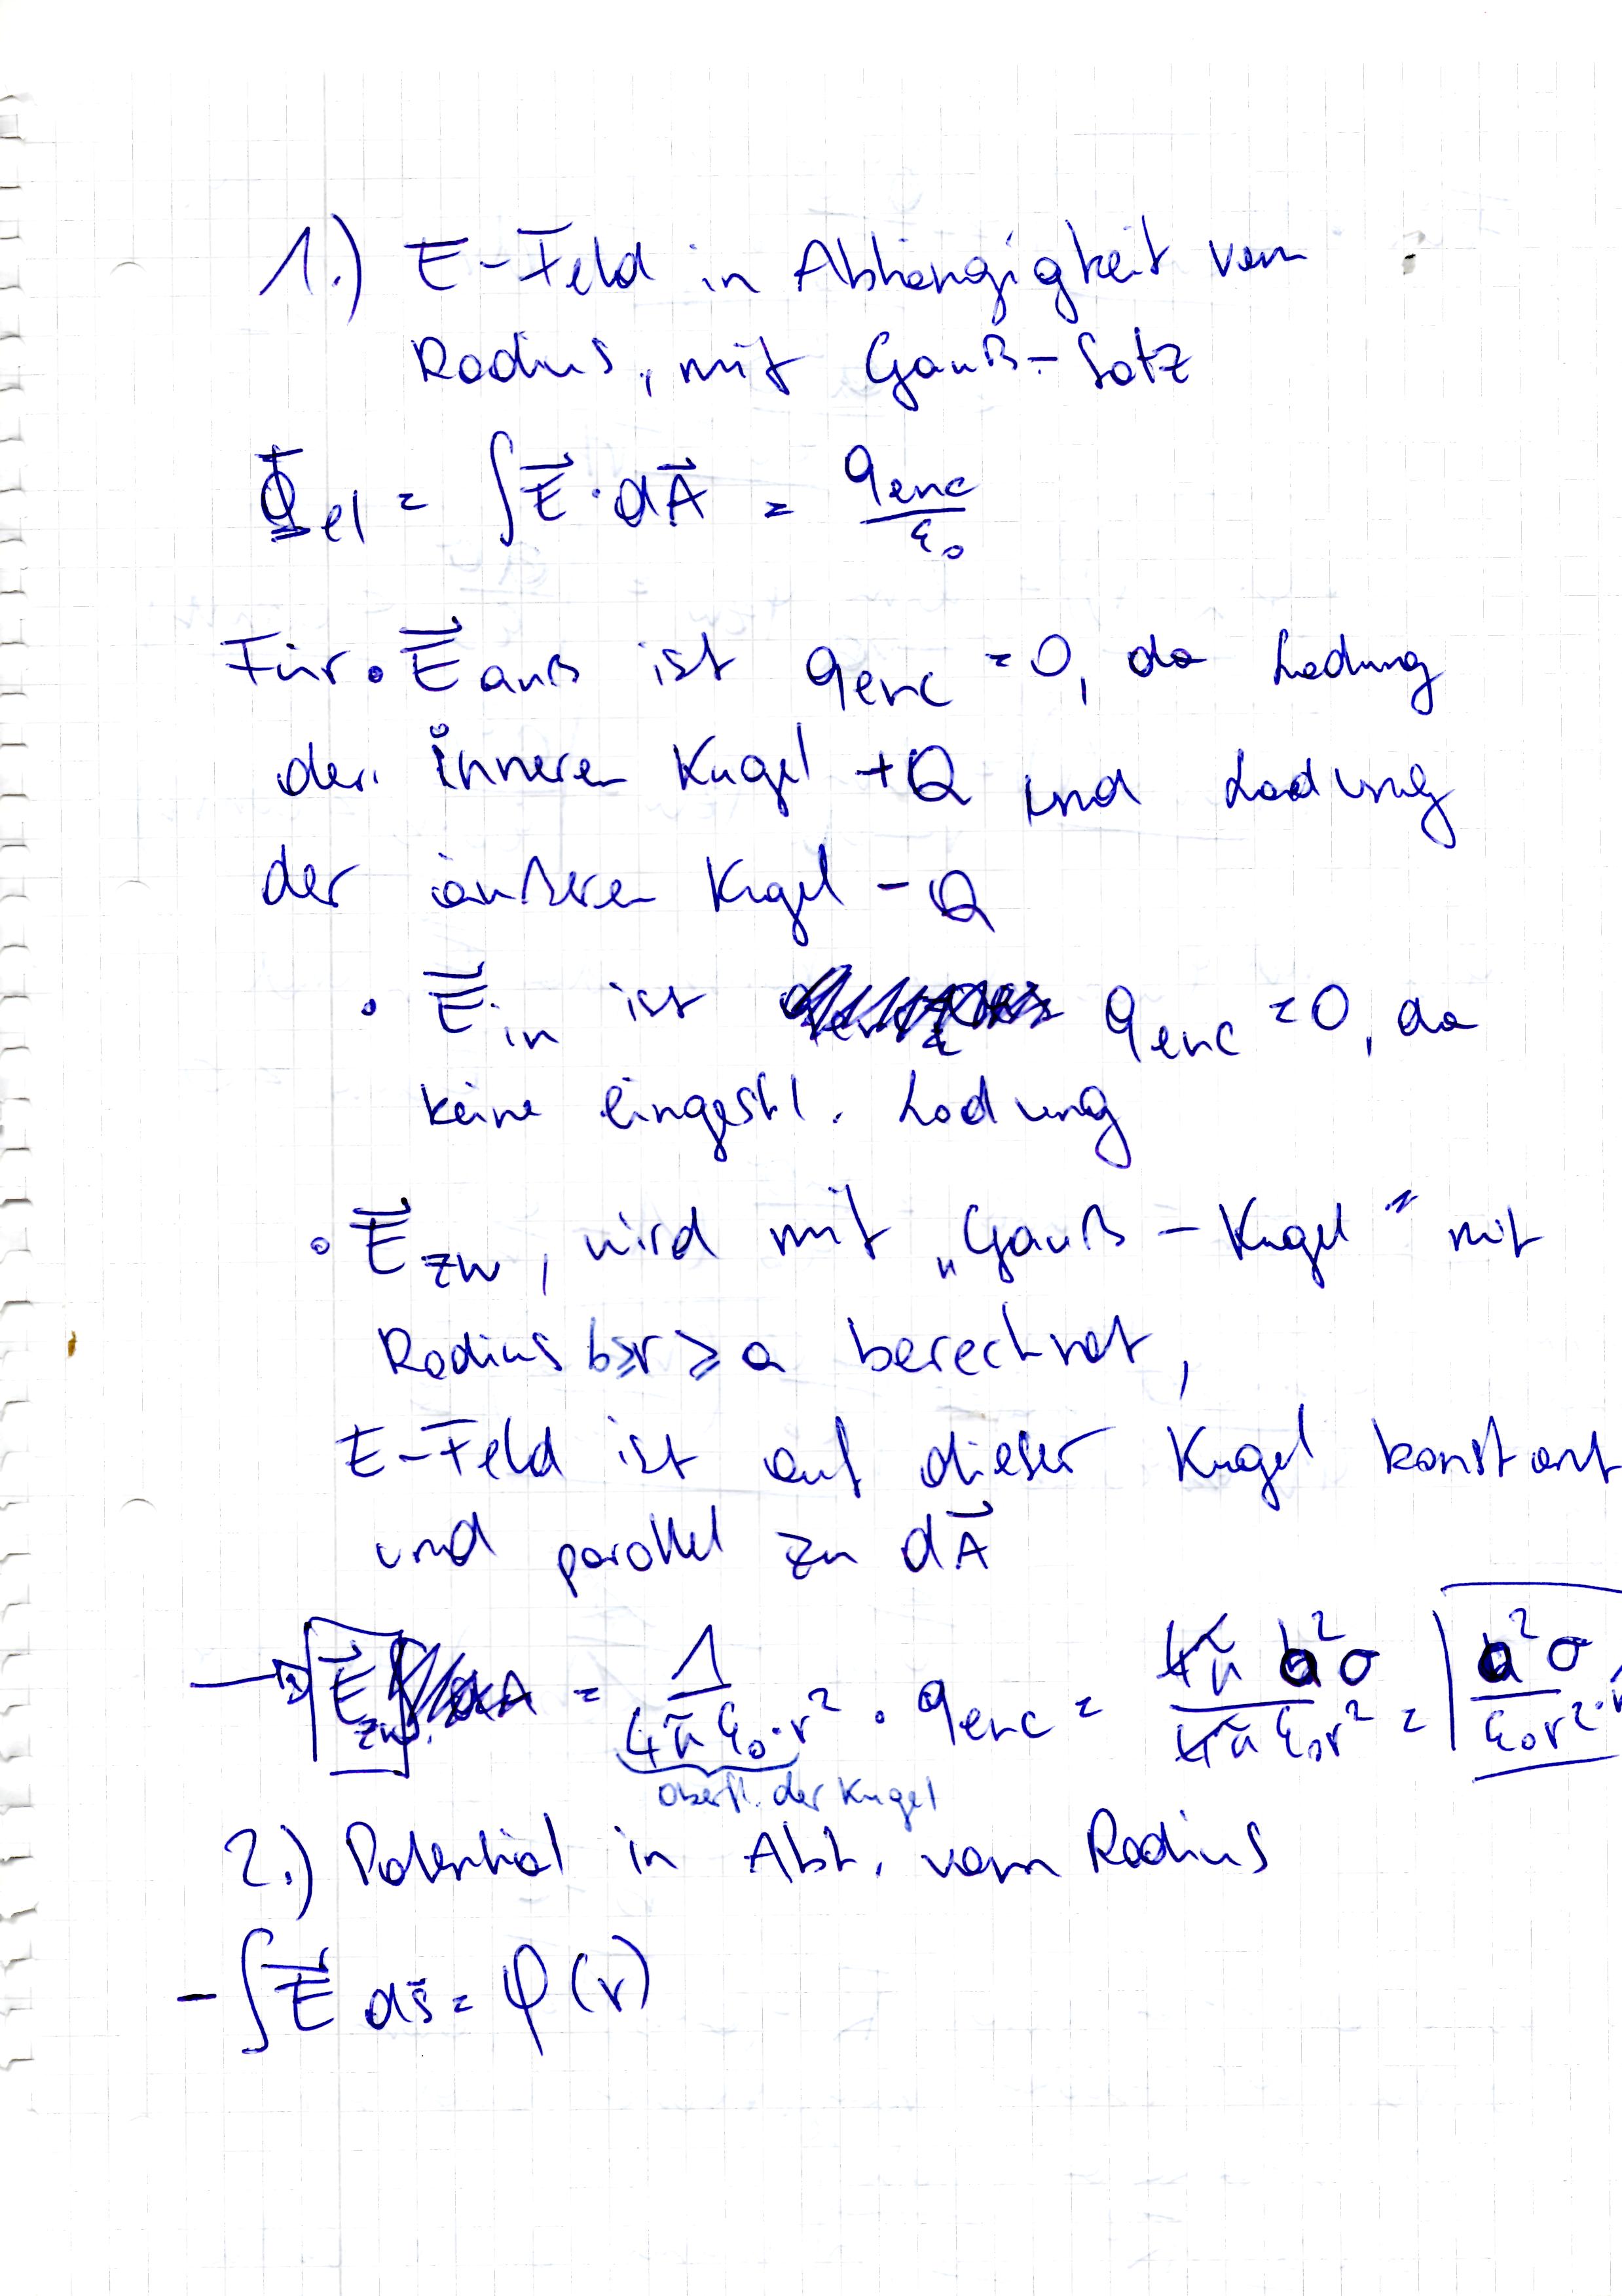 1.) E-Feld in Abhängigkeit vom
Radius, mit Gauß-Satz
Φ_el = ∫E⃗ · dA⃗ = q_enc/ε₀
Für • E⃗_auß ist q_enc = 0, da Ladung
der inneren Kugel +Q und Ladung
der äußeren Kugel -Q
• E⃗_in ist q_enc = 0, da
keine eingeschl. Ladung
• E⃗_zw, wird mit „Gauß-Kugel" mit
Radius b ≥ r ≥ a berechnet,
E-Feld ist auf dieser Kugel konstant
und parallel zu dA⃗
→ E⃗_zw = 1/(4π ε₀ · r²) · q_enc = 4π a² σ/(4π ε₀ r²) = a² σ/(ε₀ r²) ·
Oberfl. der Kugel
2.) Potential in Abh. vom Radius
-∫E⃗ ds⃗ = φ(r)